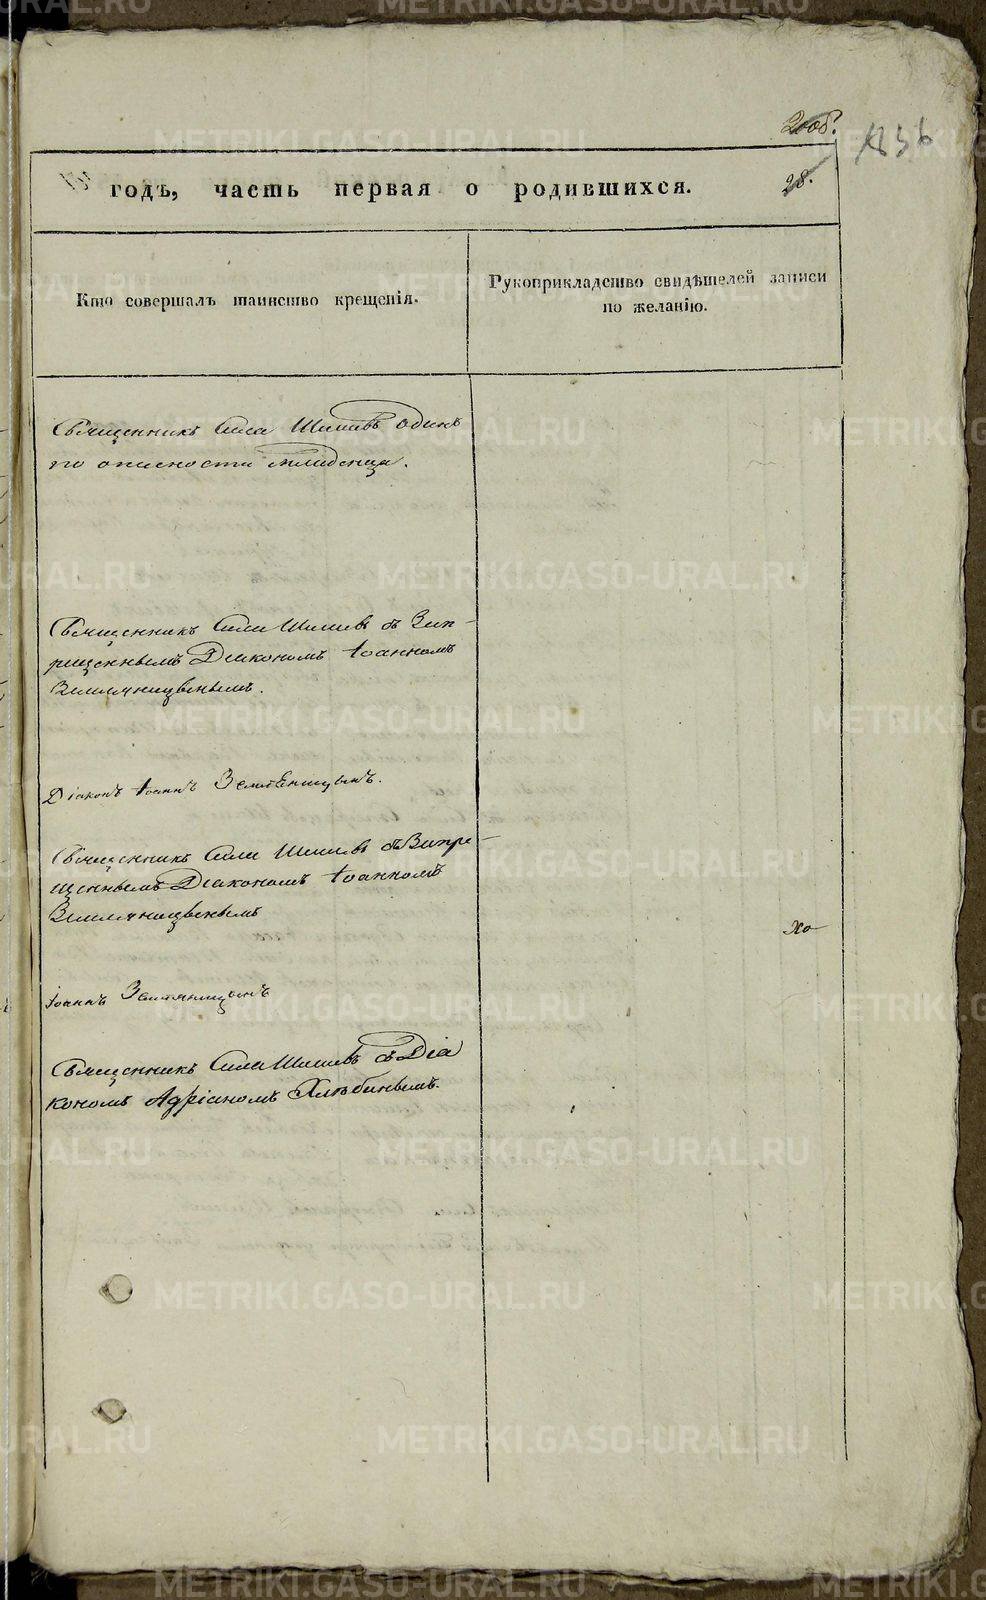 200об.
136
28.
годъ, часть первая о родившихся.
Кто совершалъ таинство крещенія.
Рукоприкладство свидѣтелей записи
по желанію.
Священникъ Сила Шишевъ одинъ
по опасности младенца.
Священникъ Сила Шишевъ съ Запре-
щеннымъ Діакономъ Іоанномъ
Земляницынымъ.
Діаконъ Іоаннъ Земляницынъ.
Священникъ Сила Шишевъ съ Запре-
щеннымъ Діакономъ Іоанномъ
Земляницынымъ
хо-
Іоаннъ Земляницынъ
Священникъ Сила Шишевъ съ Діа
кономъ Адріаномъ Хлѣбинымъ.
METRIKI.GASO-URAL.RU